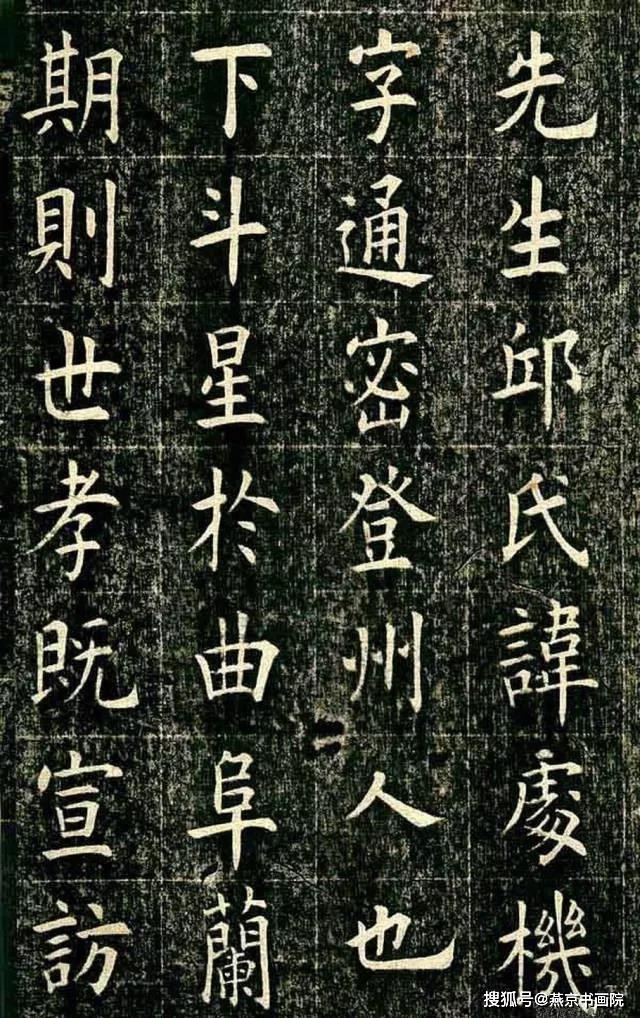 先生邱氏諱處機
字通密登州人也
下斗星於曲阜蘭
期則世孝既宣訪
搜狐号@燕京书画院